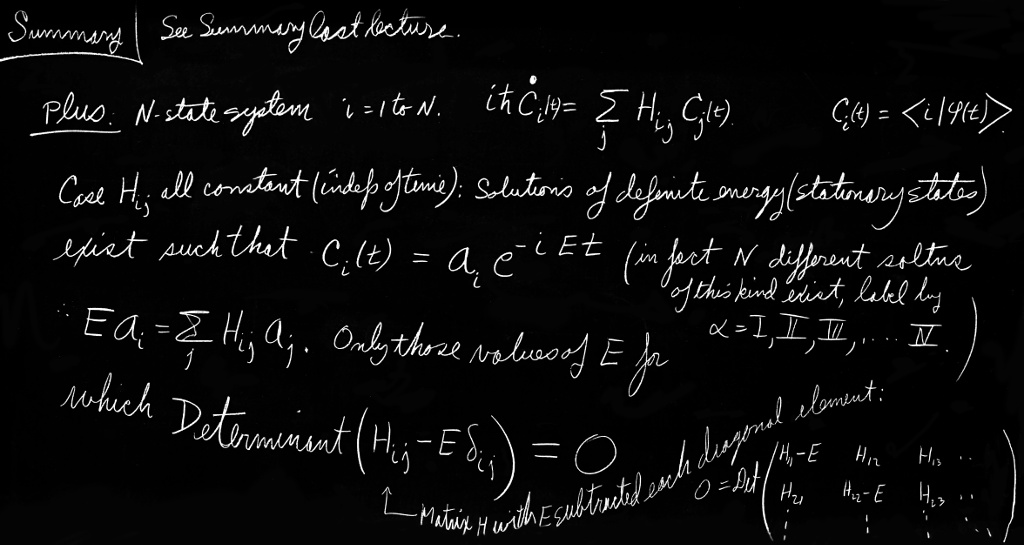 Summary | See Summary last lecture.
Plus: N-state system i = 1 to N. iħĊᵢ(t) = Σⱼ Hᵢⱼ Cⱼ(t). Cᵢ(t) = <i|φ(t)>.
Case Hᵢⱼ all constant (indep of time): Solutions of definite energy (stationary states)
exist such that Cᵢ(t) = aᵢ e^(-iEt) (in fact N different soltns
of this kind exist, label by
α = I, II, III, .... N.)
∴ E aᵢ = Σⱼ Hᵢⱼ aⱼ. Only those values of E for
which Determinant (Hᵢⱼ - E δᵢⱼ) = 0
Matrix H with E subtracted each diagonal element:
0 = Det ( H₁₁-E H₁₂ H₁₃ ..
H₂₁ H₂₂-E H₂₃ ..